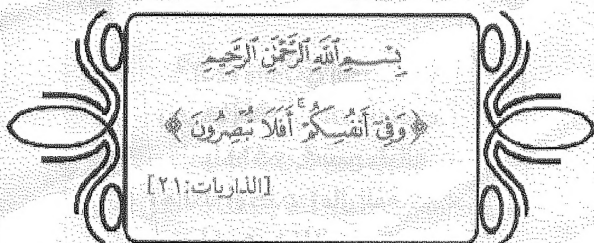 بِسْمِ ٱللَّهِ ٱلرَّحْمَٰنِ ٱلرَّحِيمِ
﴿ وَفِىٓ أَنفُسِكُمْ ۚ أَفَلَا تُبْصِرُونَ ﴾
[الذاريات:٢١]